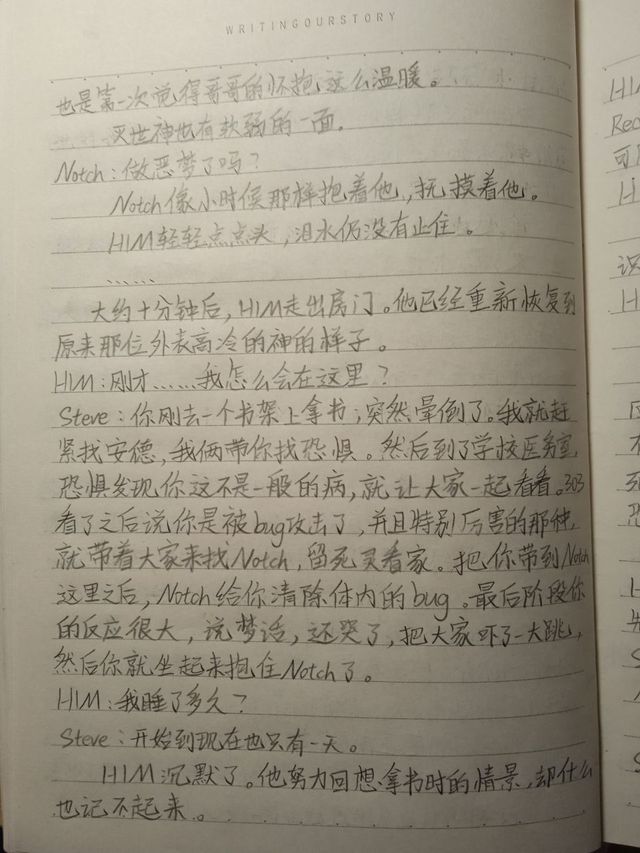 WRITINGOURSTORY
也是第一次觉得哥哥的怀抱这么温暖。
灭世神也有软弱的一面。
Notch：做恶梦了吗？
Notch像小时候那样抱着他，抚摸着他。
HIM轻轻点点头，泪水仍没有止住。
……
大约十分钟后，HIM走出房门。他已经重新恢复到
原来那位外表高冷的神的样子。
HIM：刚才……我怎么会在这里？
Steve：你刚去一个书架上拿书，突然晕倒了。我就赶
紧找安德，我俩带你找恐惧。然后到了学校医务室，
恐惧发现你这不是一般的病，就让大家一起看看。303
看了之后说你是被bug攻击了，并且特别厉害的那种，
就带着大家来找Notch，留死灵看家。把你带到Notch
这里之后，Notch给你清除体内的bug。最后阶段你
的反应很大，说梦话，还哭了，把大家吓了一大跳，
然后你就坐起来抱住Notch了。
HIM：我睡了多久？
Steve：开始到现在也只有一天。
HIM沉默了。他努力回想拿书时的情景，却什么
也记不起来。
HI
Rec
可
H
识
H
不
30
恐
H
S
S